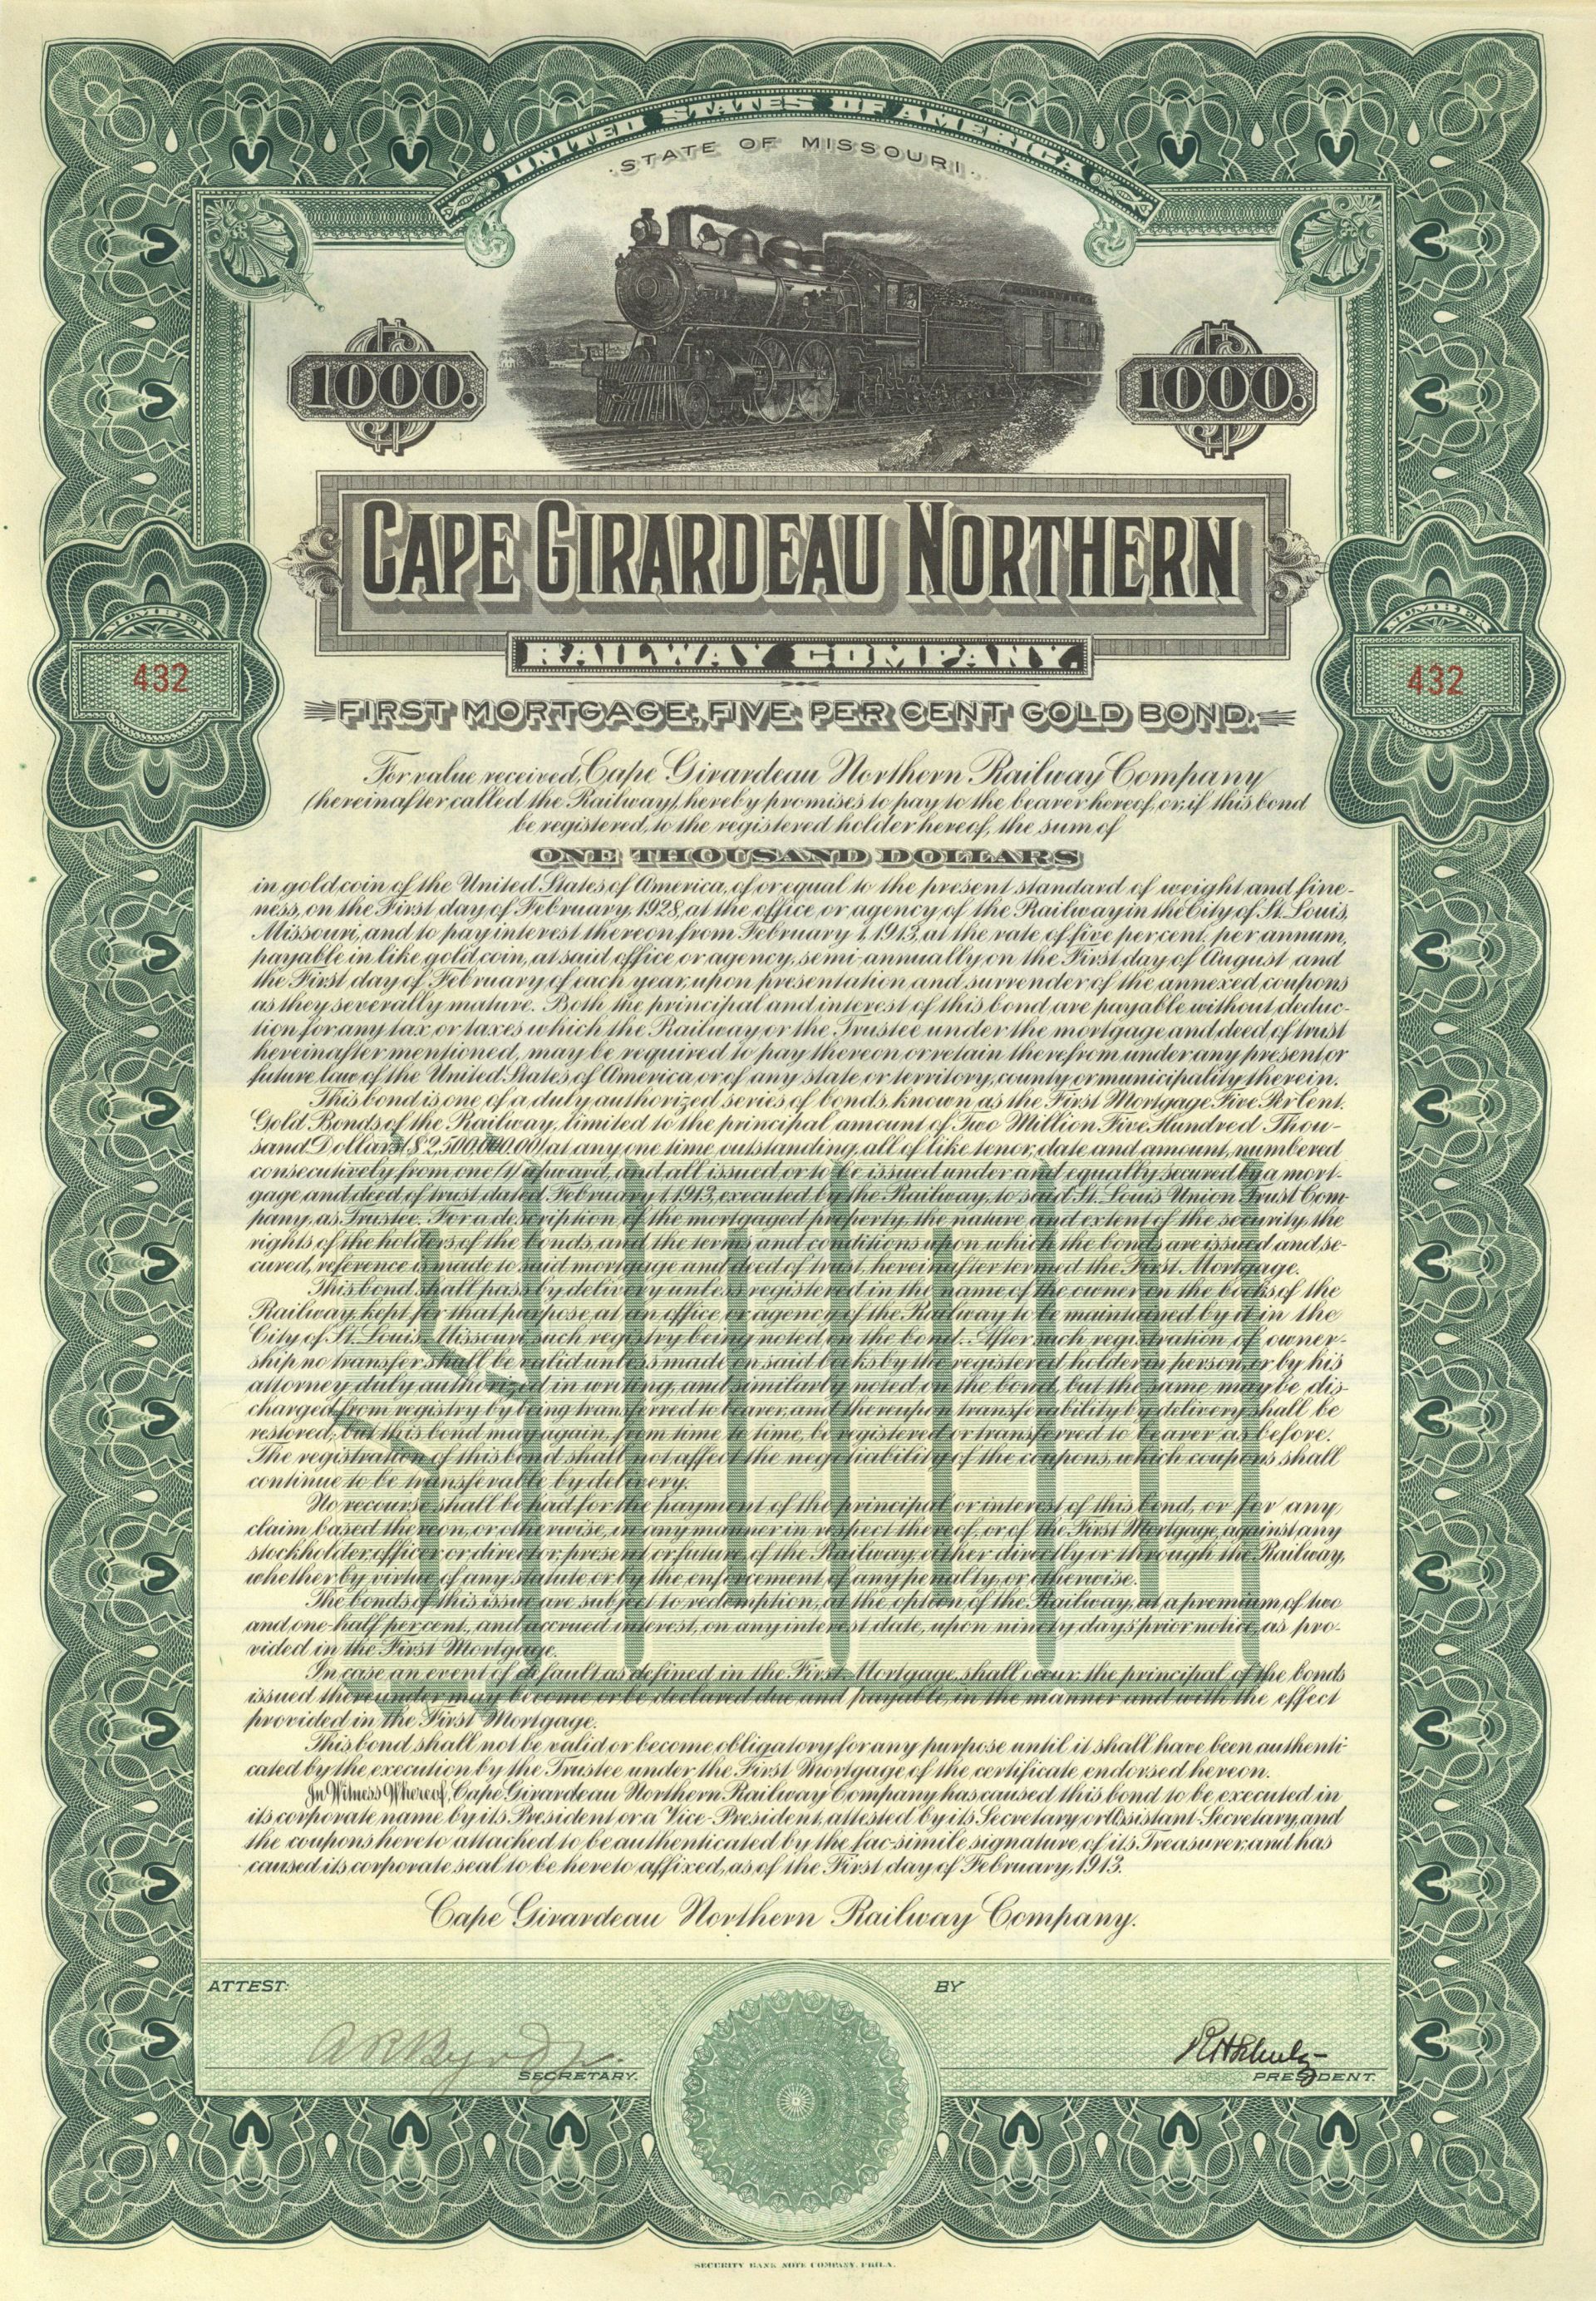 UNITED STATES OF AMERICA
STATE OF MISSOURI.
1000. 1000.
CAPE GIRARDEAU NORTHERN
RAILWAY COMPANY.
NUMBER NUMBER
432 432
FIRST MORTGAGE, FIVE PER CENT GOLD BOND.
For value received, Cape Girardeau Northern Railway Company
(hereinafter called the Railway) hereby promises to pay to the bearer hereof, or, if this bond
be registered, to the registered holder hereof, the sum of
ONE THOUSAND DOLLARS
in gold coin of the United States of America, of or equal to the present standard of weight and fine-
ness, on the First day of February, 1928, at the office or agency of the Railway in the City of St. Louis,
Missouri, and to pay interest thereon from February 1, 1913, at the rate of five per cent. per annum,
payable in like gold coin, at said office or agency, semi-annually on the First day of August and
the First day of February of each year, upon presentation and surrender of the annexed coupons
as they severally mature. Both the principal and interest of this bond are payable without deduc-
tion for any tax or taxes which the Railway or the Trustee under the mortgage and deed of trust
hereinafter mentioned, may be required to pay thereon or retain therefrom under any present or
future law of the United States of America, or of any state or territory, county or municipality therein.
This bond is one of a duly authorized series of bonds, known as the First Mortgage Five Per Cent.
Gold Bonds of the Railway, limited to the principal amount of Two Million Five Hundred Thou-
sand Dollars ($2,500,000.00) at any one time outstanding, all of like tenor, date and amount, numbered
consecutively from one (1) upward, and all issued or to be issued under and equally secured by a mort-
gage and deed of trust dated February 1, 1913, executed by the Railway, to said St. Louis Union Trust Com-
pany, as Trustee. For a description of the mortgaged property, the nature and extent of the security, the
rights of the holders of the bonds, and the terms and conditions upon which the bonds are issued and se-
cured, reference is made to said mortgage and deed of trust, hereinafter termed the First Mortgage.
This bond shall pass by delivery unless registered in the name of the owner on the books of the
Railway, kept for that purpose, at an office or agency of the Railway to be maintained by it in the
City of St. Louis, Missouri, such registry being noted on the bond. After such registration of owner-
ship no transfer shall be valid unless made on said books by the registered holder in person, or by his
attorney duly authorized in writing, and similarly noted on the bond, but the same may be dis-
charged from registry by being transferred to bearer, and thereupon transferability by delivery shall be
restored, but this bond may again, from time to time, be registered or transferred to bearer as before.
The registration of this bond shall not affect the negotiability of the coupons, which coupons shall
continue to be transferable by delivery.
No recourse shall be had for the payment of the principal or interest of this bond, or for any
claim based thereon, or otherwise, in any manner in respect thereof, or of the First Mortgage, against any
stockholder, officer or director, present or future, of the Railway, either directly or through the Railway,
whether by virtue of any statute or by the enforcement of any penalty, or otherwise.
The bonds of this issue are subject to redemption, at the option of the Railway, at a premium of two
and one-half per cent., and accrued interest, on any interest date, upon ninety days' prior notice, as pro-
vided in the First Mortgage.
In case an event of default as defined in the First Mortgage, shall occur, the principal of the bonds
issued thereunder may become or be declared due and payable, in the manner and with the effect
provided in the First Mortgage.
This bond shall not be valid or become obligatory for any purpose until it shall have been authenti-
cated by the execution by the Trustee under the First Mortgage of the certificate endorsed hereon.
In Witness Whereof, Cape Girardeau Northern Railway Company has caused this bond to be executed in
its corporate name by its President or a Vice-President, attested by its Secretary or Assistant-Secretary, and
the coupons hereto attached to be authenticated by the fac-simile signature of its Treasurer, and has
caused its corporate seal to be hereto affixed, as of the First day of February, 1913.
Cape Girardeau Northern Railway Company.
ATTEST: BY
A R Byrd Jr. R H Schultz
SECRETARY. PRESIDENT.
SECURITY BANK NOTE COMPANY, PHILA.